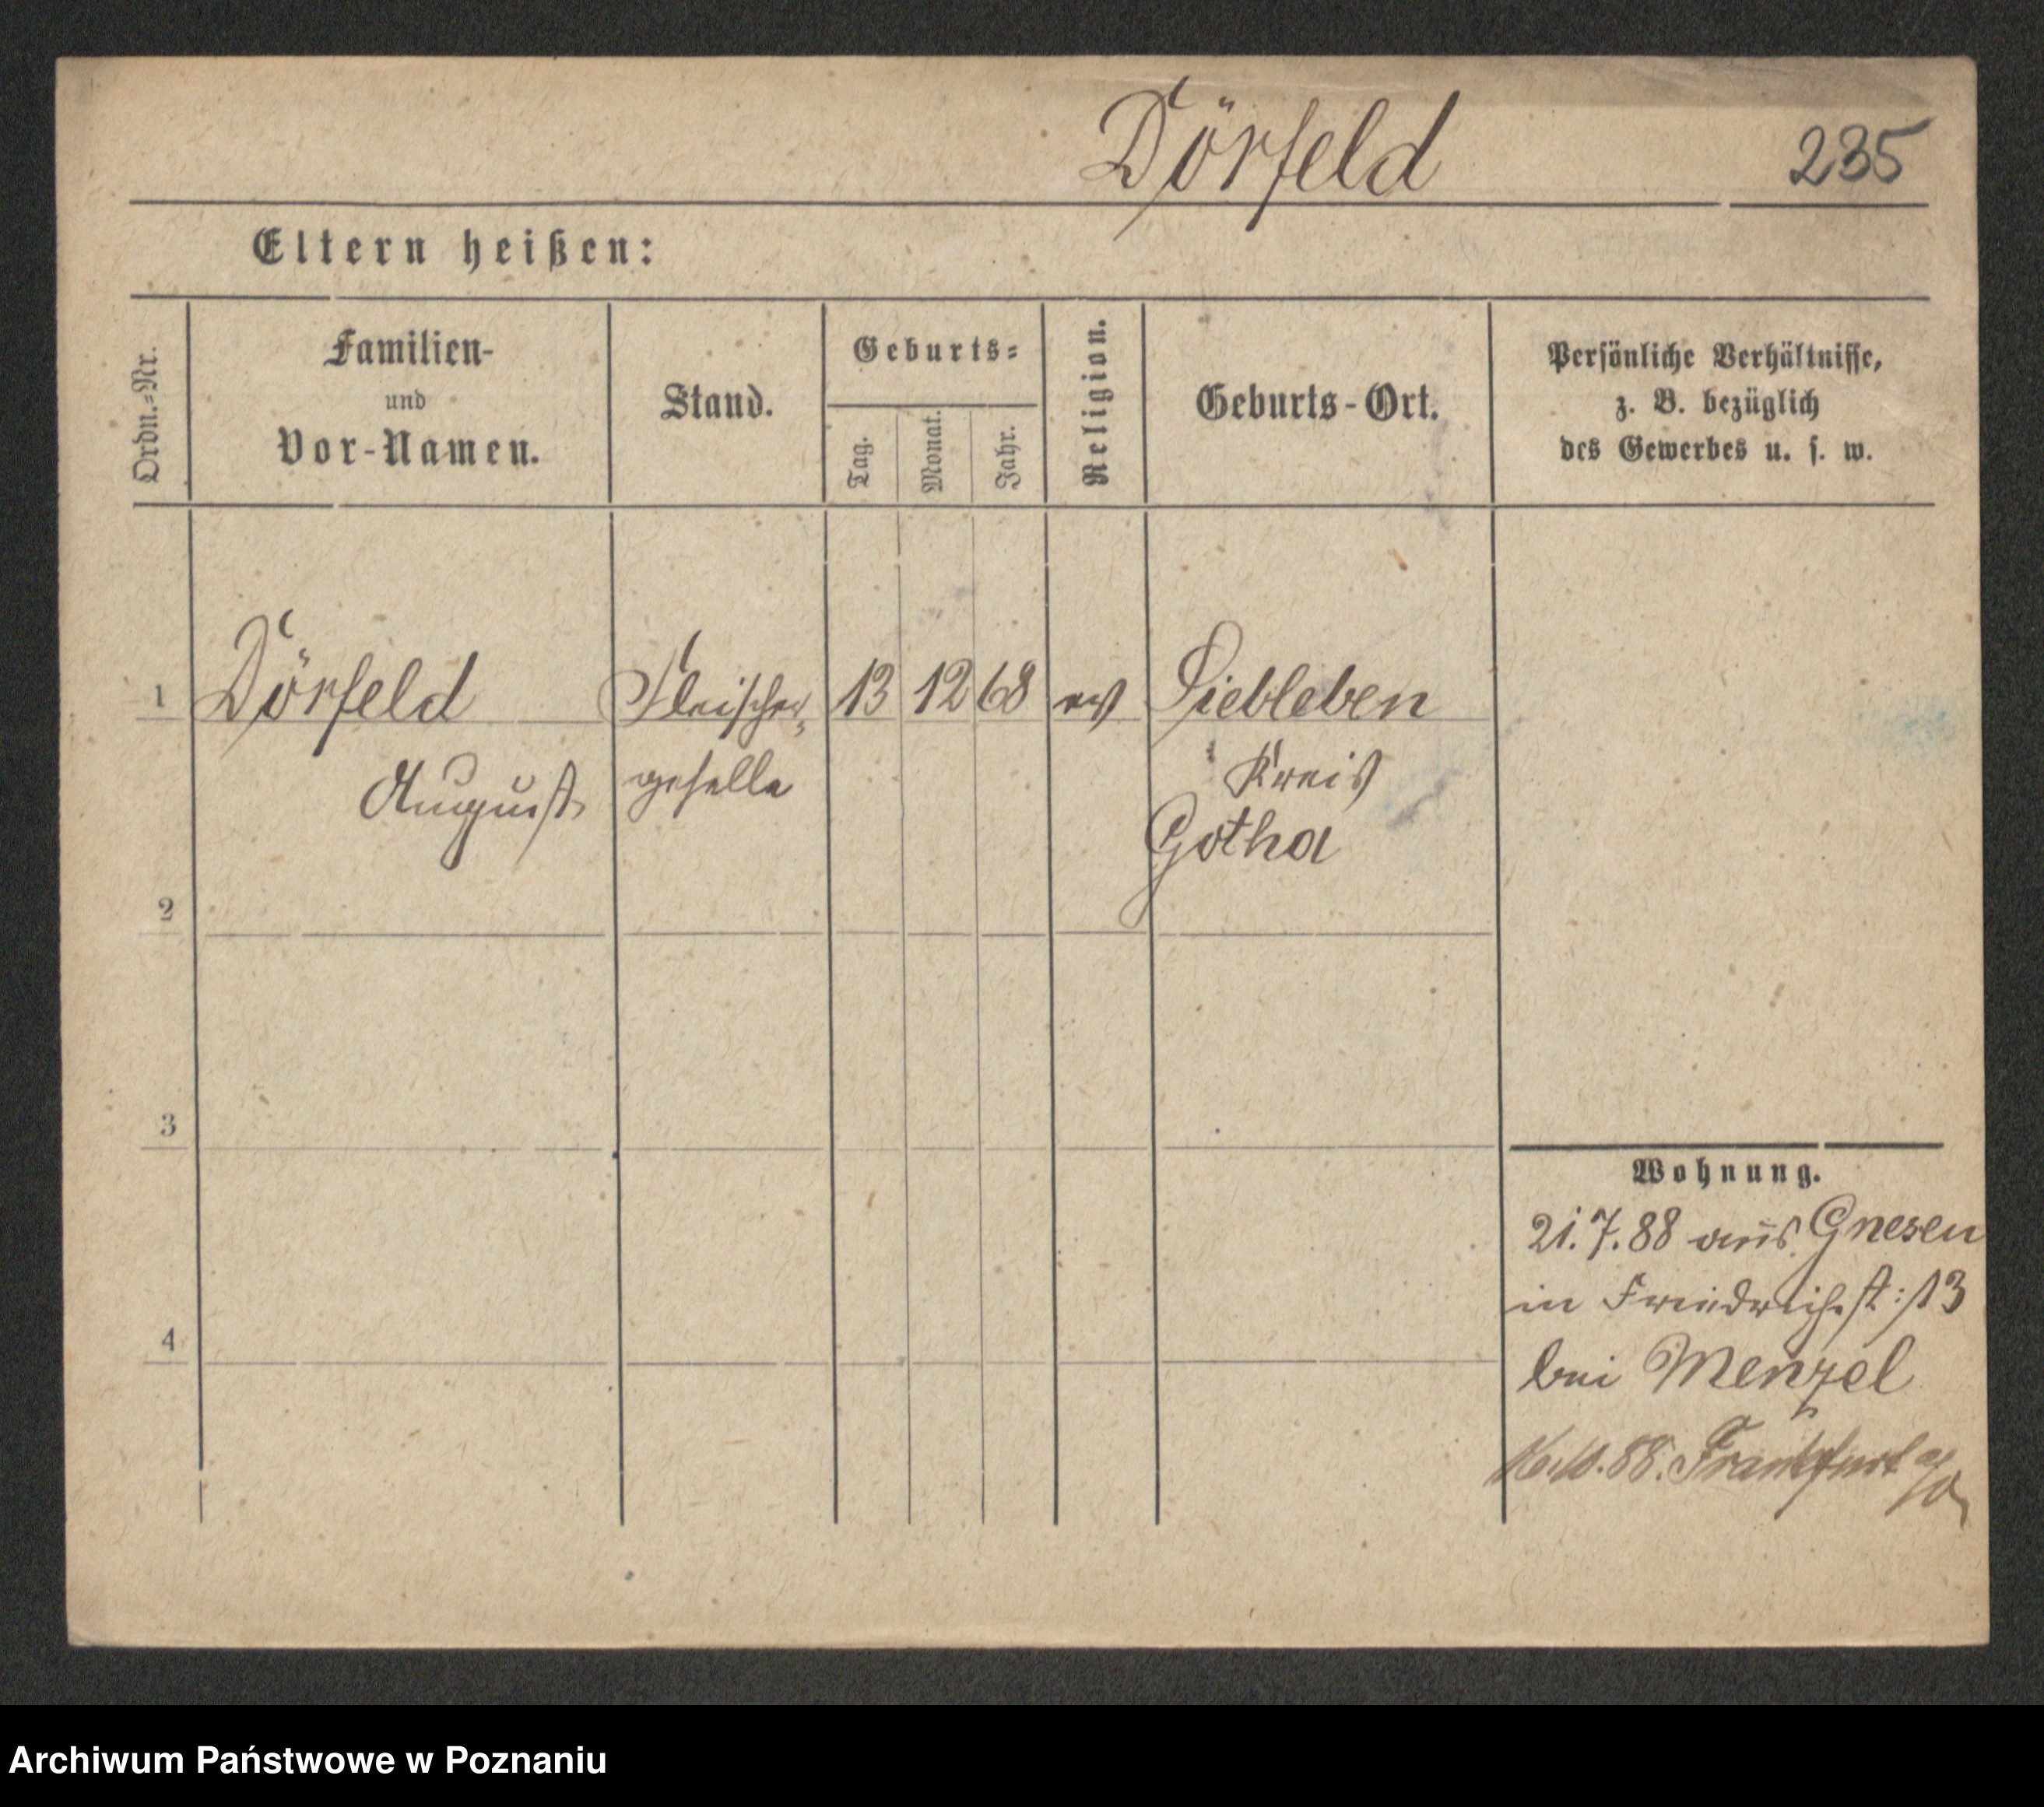 Dörfeld 235
Eltern heißen:
Ordn.-Nr.
Familien-
und
Vor-Namen.
Stand.
Geburts-
Tag.
Monat.
Jahr.
Religion.
Geburts-Ort.
Persönliche Verhältnisse,
z. B. bezüglich
des Gewerbes u. s. w.
1 Dörfeld Fleischer- 13 12 68 ev Siebleben
August geselle Kreis
Gotha
2
3
4
Wohnung.
21.7.88 aus Gnesen
in Friedrichst: 13
bei Menzel
88. Frankfurt a/O
Archiwum Państwowe w Poznaniu